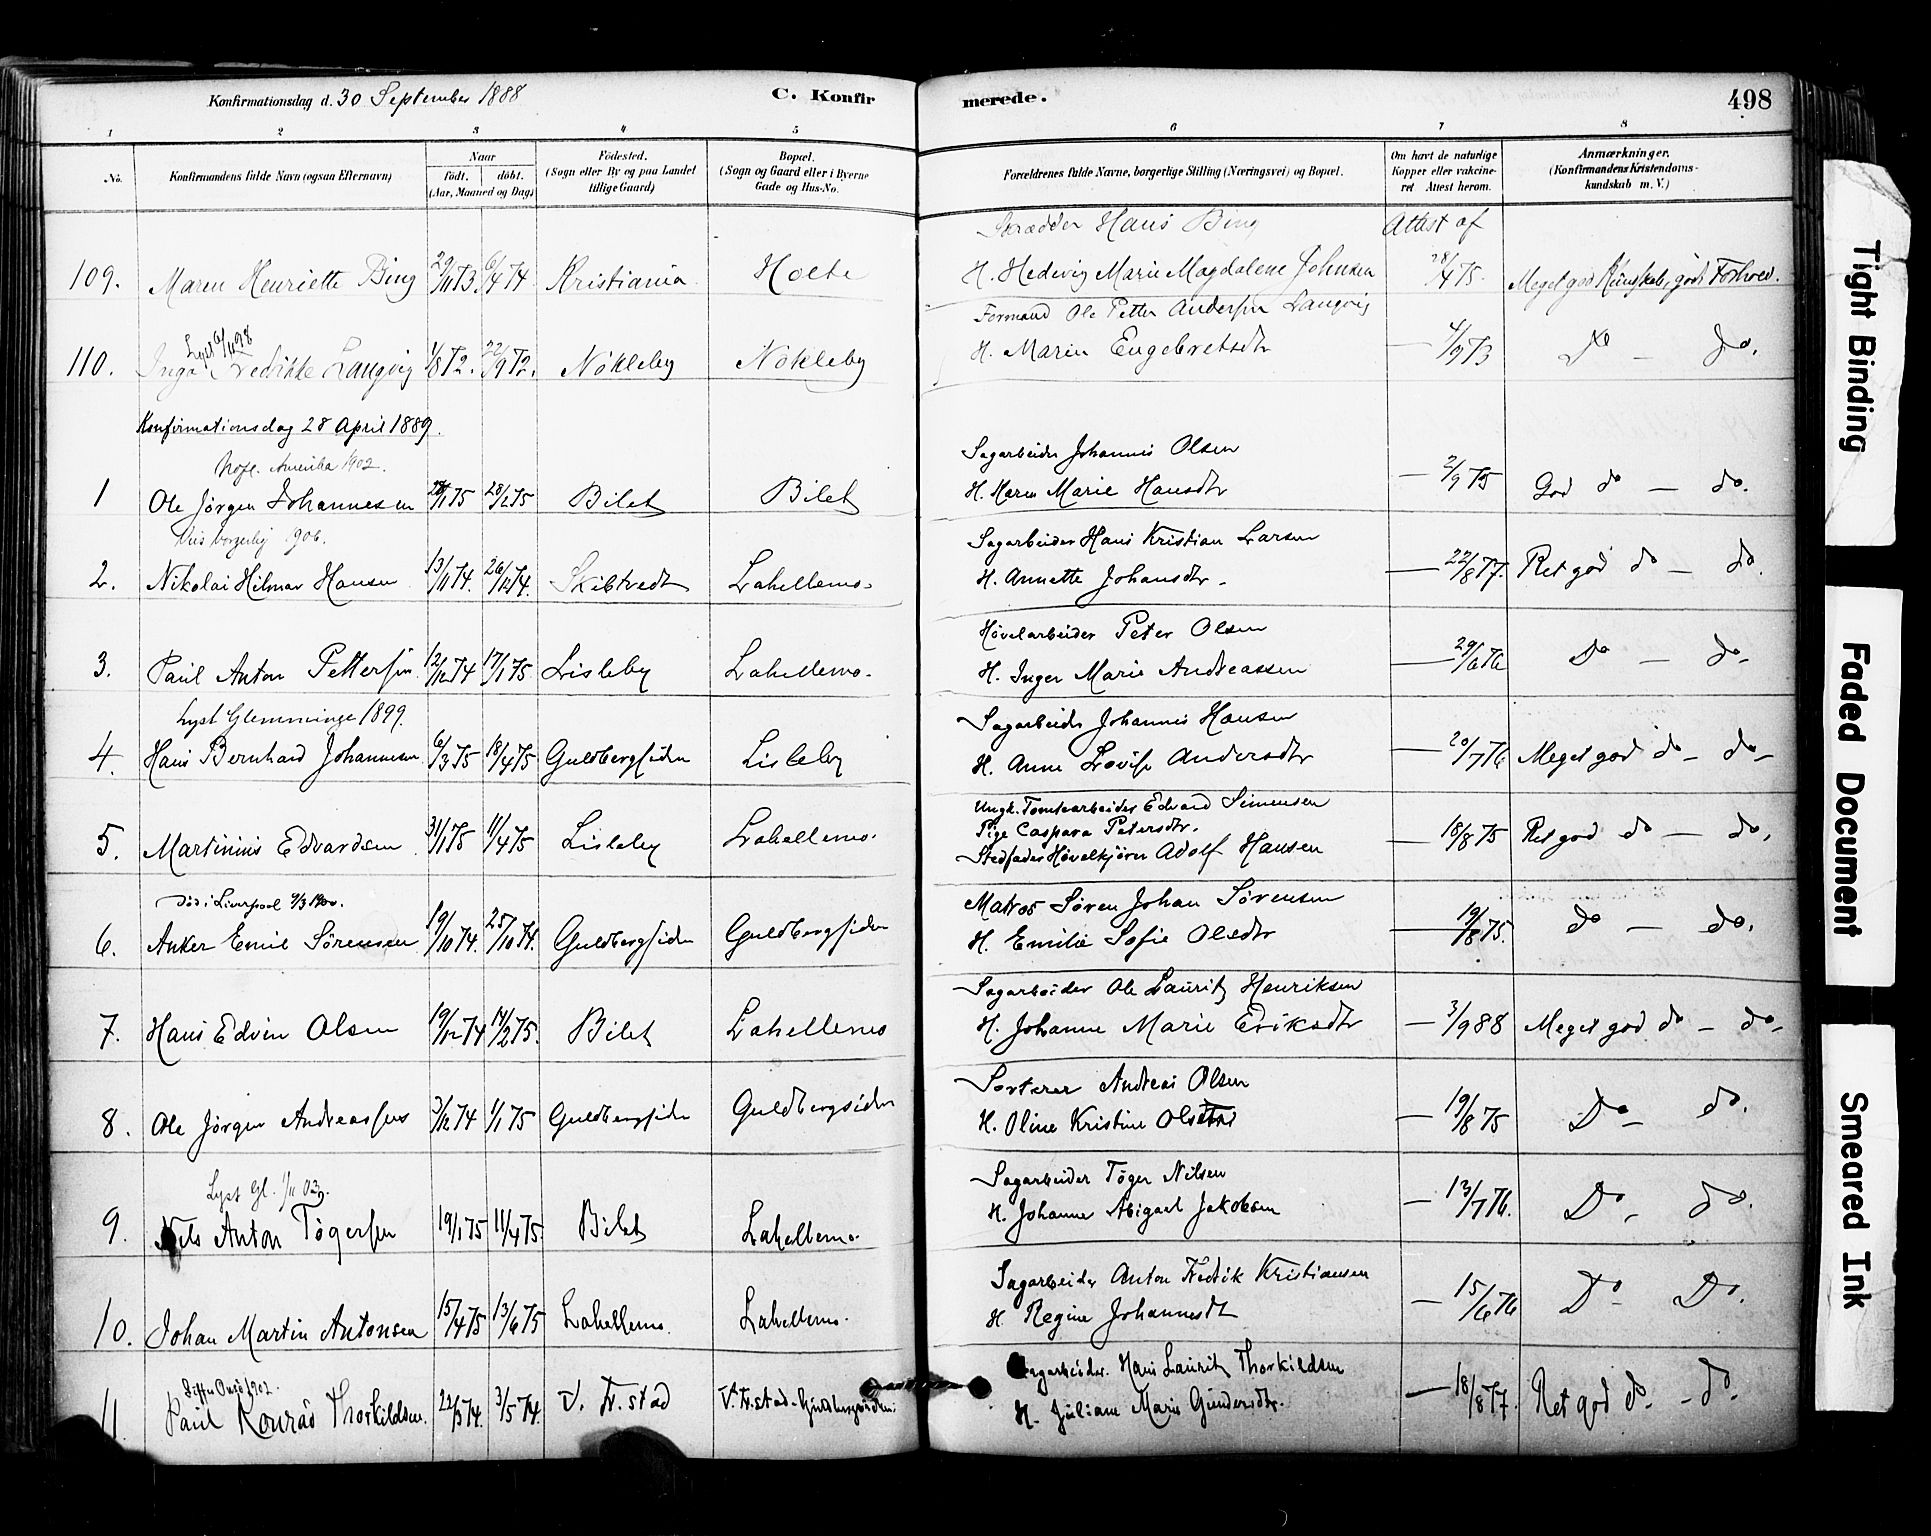 Konfirmationsdag d. 30 September 1888 C. Konfirmerede. 498
1 2 3 4 5 6 7 8
No. Konfirmandens fulde Navn (ogsaa Efternavn) Naar födt. döbt. (Aar, Maaned og Dag) Födested. (Sogn eller By og paa Landet tillige Gaard) Bopæl. (Sogn og Gaard eller i Byerne Gade og Hus-No. Forældrenes fulde Navne, borgerlige Stilling (Næringsvei) og Bopæl. Om havt de naturlige Kopper eller vakcineret Attest herom. Anmærkninger. (Konfirmandens Kristendomskundskab m. V.)
Skrædder Hans Bing Attest af
109. Maren Henriette Bing 29/11 73 6/4 74. Kristiania Holte H. Hedevig Marie Magdalene Johnsen 28/4 75. Meget god Kundskab, godt Forhold.
Lyst 6/11 98 Formand Ole Petter Andersen Langvig
110. Inga Fredrikke Langvig 1/8 72. 22/9 72. Nökleby Nökleby H. Maren Engebretsdtr — 4/9 73 Do — Do.
Konfirmationsdag 28 April 1889.
Amerika 1902. Sagarbeider Johannes Olsen
1 Ole Jörgen Johannesen 75 28/2 75 Bilet Bilet H. Maren Marie Hansdtr — 2/9 75 God do — do.
borgerlig 1906. Sagarbeider Hans Kristian Larsen
2. Nikolai Hilmar Hansen 13/11 74. 26/12 74. Skibtvedt Lahellemo. H. Annette Johansdtr. — 22/8 77. Ret god do — do.
Hövelarbeider Peter Olsen
3. Paul Anton Pettersen 12/12 74 17/1 75. Lisleby Lahellemo. H. Inger Marie Andreassen — 29/6 76 Do — do.
Lyst Glemminge 1899. Sagarbeider Johannes Hansen
4. Hans Bernhard Johannesen 6/3 75 18/4 75 Guldbergsiden Lisleby H. Anne Lovise Andersdtr — 20/7 76 Meget god do — do —
Ungk. Tomtearbeider Edvard Simensen
Pige Caspara Petersdtr.
5. Martinius Edvardsen 31/1 75 11/4 75 Lisleby Lahellemo. Stedfader Hövelkjörer Adolf Hansen — 18/8 75 Ret god do — do.
Död i Liverpool 9/3 1900. Matros Sören Johan Sörensen
6. Anker Emil Sörensen 19/10 74. 25/10 74. Guldbergsiden Guldbergsiden H. Emilie Sofie Olsdtr — 19/8 75. do — do.
Sagarbeider Ole Lauritz Henriksen
7. Hans Edvin Olsen 19/12 74 14/2 75. Bilet Lahellemo H. Johanne Marie Eriksdtr — 3/9 88 Meget god do — do —
Sorterer Andreas Olsen
8. Ole Jörgen Andreassen 3/12 74 1/1 75 Guldbergsiden Guldbergsiden H. Oline Kristine Olsdtr — 19/8 75 Do — do.
Lyst Gl. 1/11 03. Sagarbeider Töger Nilsen
9. Nils Anton Tögersen 19/1 75 11/4 75. Bilet Lahellemo. H. Johanne Abigael Jakobsen — 13/7 76. Do — do.
Sagarbeider Anton Fredrik Kristiansen
10. Johan Martin Antonsen 15/4 75 13/6 75 Lahellemo. Lahellemo. H. Regine Johannesdt — 15/6 76 Do — Do.
1902. Sagarbeider. Hans Lauritz Thorkildsen
11 Paul Konrad Thorkildsen. 22/3 74. 3/5 74. V. Fr.stad V. Fr.stad - Guldbergsiden. H. Juliane Marie Gundersdtr. — 18/8 77. Ret god do. — do.
Tight Binding
Faded Document
Smeared Ink